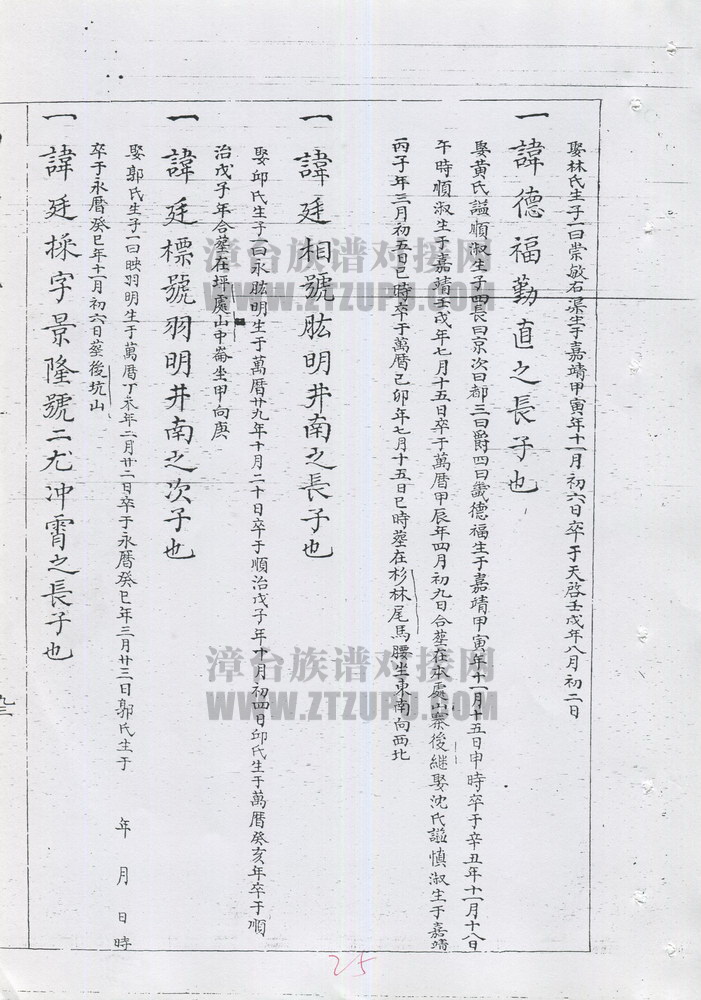 娶林氏生子一曰崇敏石渠生于嘉靖甲寅年十一月初六日卒于天啓壬戌年八月初二日
一諱德福勤直之長子也
娶黄氏謚順淑生子四長曰京次曰都三曰爵四曰畿德福生于嘉靖甲寅年十一月十五日申時卒于辛丑年十一月十八日
午時順淑生于嘉靖壬戌年七月十五日卒于萬曆甲辰年四月初九日合塟在本處山寨後継娶沈氏謚慎淑生于嘉靖
丙子年三月初五日巳時卒于萬曆己卯年七月十五日巳時塟在杉林尾馬腰坐東南向西北
一諱廷相號肱明井南之長子也
娶邱氏生子一曰永肱明生于萬曆廿九年十月二十日卒于順治戊子年十月初四日邱氏生于萬曆癸亥年卒于順
治戊子年合塟在坪處山中崙坐甲向庚
一諱廷標號羽明井南之次子也
娶郭氏生子一曰映羽明生于萬曆丁未年二月廿二日卒于永曆癸巳年三月廿三日郭氏生于 年 月 日 時
卒于永曆癸巳年十一月初六日塟後坑山
一諱廷採字景隆號二尤冲霄之長子也
九三
25
漳台族谱对接网
WWW.ZTZUPU.COM
漳台族谱对接网
WWW.ZTZUPU.COM